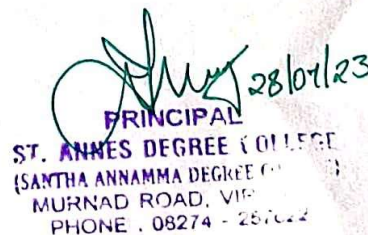 28/07/23
PRINCIPAL
ST. ANNES DEGREE COLLEGE
(SANTHA ANNAMMA DEGREE
MURNAD ROAD,
PHONE . 08274 -